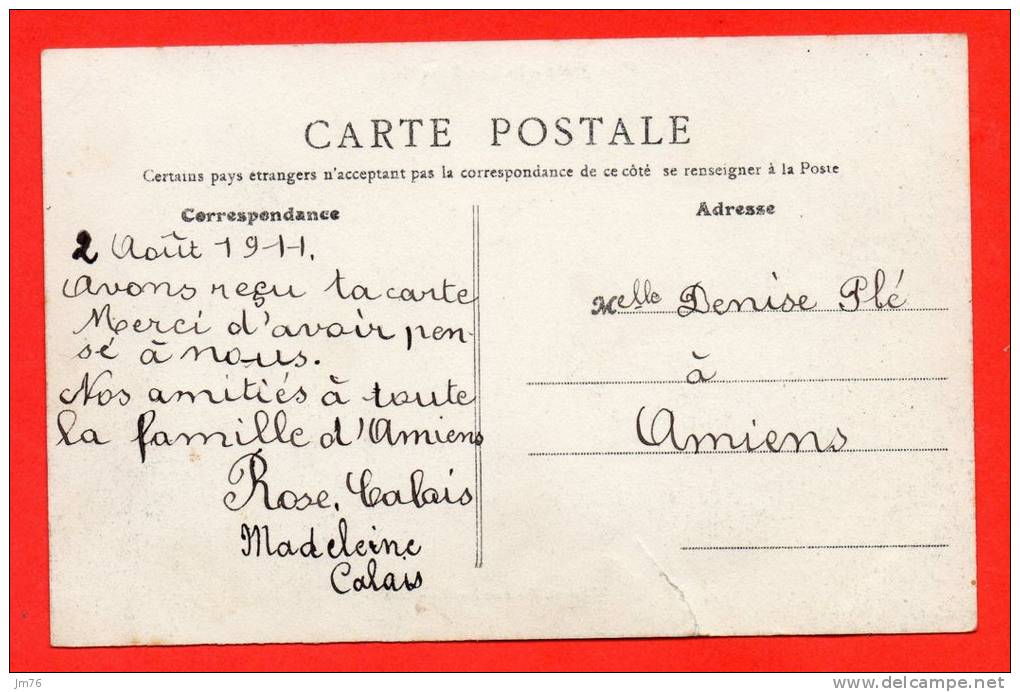 CARTE POSTALE
Certains pays étrangers n'acceptant pas la correspondance de ce côté se renseigner à la Poste
Correspondance
2 Août 1911.
Avons reçu ta carte
Merci d'avoir pen-
sé à nous.
Nos amitiés à toute
la famille d'Amiens
Rose, Calais
Madeleine
Calais
Adresse
Melle Denise Plé
à
Amiens
jm76
www.delcampe.net